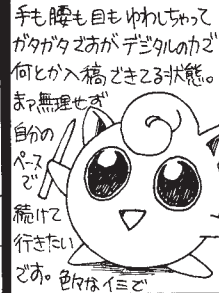 手も腰も目もゆわしちゃって
ガタガタですがデジタルの力で
何とか入稿できてる状態。
まァ無理せず
自分の
ペース
で
続けて
行きたい
です。色々なイミで